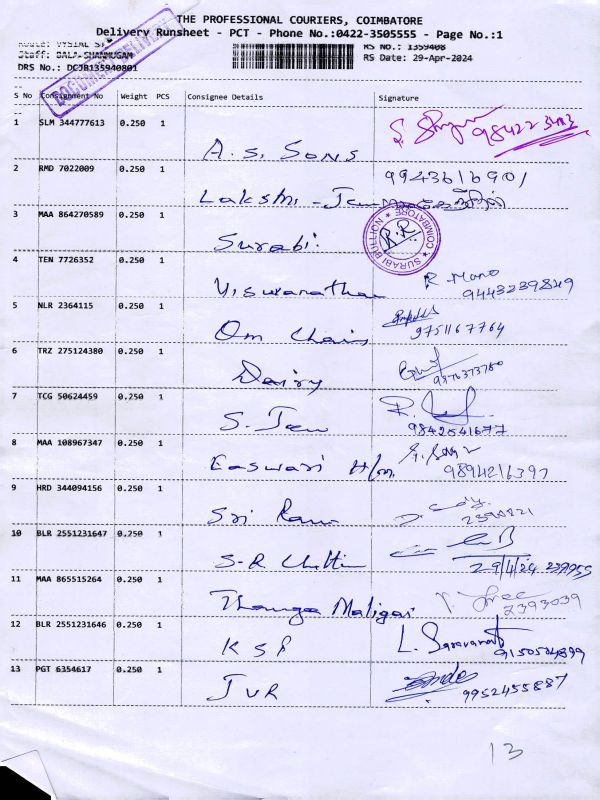 THE PROFESSIONAL COURIERS, COIMBATORE
Delivery Runsheet - PCT - Phone No.:0422-3505555 - Page No.:1
RS No.: 1359408
Staff: BALA-SHANMUGAM RS Date: 29-Apr-2024
DRS No.: DCJB135940801
S No Consignment No Weight PCS Consignee Details Signature
1 SLM 344777613 0.250 1 A. S. Sons
2 RMD 7022009 0.250 1 Lakshmi - Jew 9943616901
3 MAA 864270589 0.250 1 Surabi. COIMBATORE R.R. SURABI BULLION
4 TEN 7726352 0.250 1 Viswanathan R. Mano 9443239849
5 NLR 2364115 0.250 1 Om Chains 9751167764
6 TRZ 275124380 0.250 1 Dairy 9376373780
7 TCG 50624459 0.250 1 S. Jew 9842541677
8 MAA 108967347 0.250 1 Easwari H/m. 9894216397
9 HRD 344094156 0.250 1 Sri Ram 2390821
10 BLR 2551231647 0.250 1 S-R Chettiar 29/4/24
11 MAA 865515264 0.250 1 Thanga Maligai 2393039
12 BLR 2551231646 0.250 1 KSP L. Saravanan 9150504899
13 PGT 6354617 0.250 1 JVR 9952455887
13